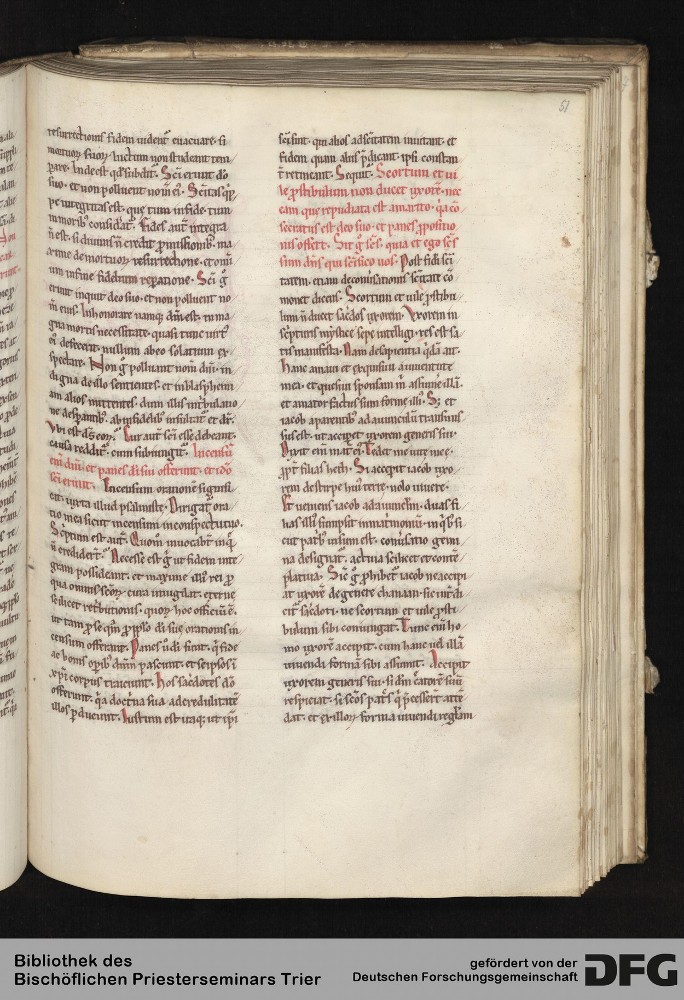 51
resurrectionis fidem uident᷑ euacuare. si
mortuor̄ suor̄ luctum non studeant tem
perare. Inde est qd̄ subdit᷑. Sc̄i erunt dō
suo. et non polluent nom̄ eī. Sc̄itas q̄ꝑ
pe integritas est. que tum in fide. tum
in moribꝰ consid̄at᷑. Fides aut̄ integra
n̄ est. si diuinis n̄ credit ꝓmissionibꝰ. ma
xime de mortuor̄ resurrectione. et omī
um in fine fidelium reparatione. Sc̄i g̊
erunt inquit deo suo. et non polluent no
m̄ eiꝰ. Inhonorare namq; dm̄ est. in ma
gna mortis necessitate. quasi tunc uirtꝰ
eī defecerit. nullum ab eo solatium ex
spectare. Non g̊ polluant nom̄ dn̄i. in
digna de illo sentientes. et in blasphemi
am alios mittentes. dum illis in t̄bulatio
ne desp̄antibꝰ. ab infidelibꝰ insultat᷑ et dr̄.
Vbi est ds̄ eor̄. Cur aut̄ sc̄i esse debeant.
causa reddit᷑. cum subiungit᷑. Incensū
enī dn̄i et panes di sui offerunt. et ido
sc̄i erunt. Incensum orationē signifi
cat. iuxta illud psalmistę. Dirigat᷑ ora
tio mea sicut incensum in conspectu tuo.
Sc̄ptum est aut̄. Quom̊ inuocabt̄ in q̄
n̄ credidert̄. Necesse est g̊ ut fidem inte
gram possideant. et maxime illar̄ rei ꝑ
qua omnis sc̄or̄ cura inuigilat. eterne
scilicet ret̄butionis. quor̄ hoc officiū ē.
ut tam ꝓ se qm̄ ꝓ pplo di sui orationis in
censum offerant. Panes u̅ di sunt. q̄ fide
ac bonis opibꝰ dnm̄ pascunt. et se ipsos ī
xp̄i corpus traiciunt. hos sacdotes dō
offerunt. q̄a doctna sua. ad credulitatē
illos ꝑducunt. Iustum est itaq; ut ip̄i
sc̄i sint. qui alios ad sc̄itatem inuitant. et
fidem quam aliis p̄dicant. ipsi constan
t̄ retineant. Sequit᷑. Scortum et ui
le ꝓstibulum non ducet uxorē. nec
eam que repudiata est a marito. q̄a cō
secratus est deo suo. et panes ꝓpositio
nis offert. Sit g̊ sc̄s. quia et ego sc̄s
sum dn̄s qui sc̄ifico uos. Post fidi sc̄i
tatem. etiam de conuersationis sc̄itate cō
monet dicens. Scortum et uile ꝓstibu
lum n̄ ducet sacdos uxorem. Vxorem in
sc̄pturis mystice sepe intelligi. res est sa
tis manifesta. Nam de sapientia q̄dā ait.
Hanc amaui et exquisiui a iuuentute
mea. et quesiui sponsam m̄ assumē illā.
et amator factus sum forme illiꝰ. S; et
iacob a parentibꝰ ad auunculū transmis
sus est. ut acciperet uxorem generis sui.
Dixit eni mat̄ eī. Tedet me uite mee.
ꝓpt̄ filias heth. Si acceperit iacob uxo
rem de stirpe huiꝰ terre. nolo uiuere.
Et ueniens iacob ad auunclm̄. duas fi
lias illiꝰ sumpsit in mat̄monium. in q̄bꝰ si
cut patbꝰ uisum est. conūsatio gemi
na designat᷑. actiua scilicet et contē
platiua. Sic g̊ ꝓhibet᷑ iacob ne accipi
at uxorē de genere chanaan. sic int̄di
cit᷑ sacdoti. ne scortum et uile ꝓsti
bulum sibi coniungat. Tunc enī ho
mo uxorē accipit. cum hanc ul̄ illā
uiuendi formā sibi assumit. Accipit
uxorem generis sui. si dm̄ c̄atorē suū
respiciat. si sc̄os pat̄s q̄ p̄cesserт̄ atte
dat. et ex illor̄ forma uiuendi reglam
Bibliothek des
Bischöflichen Priesterseminars Trier
gefördert von der
Deutschen Forschungsgemeinschaft
DFG